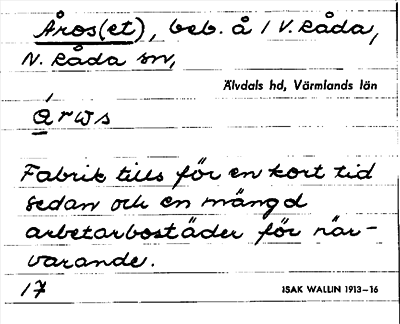 Åros(et), beb. å 1 V. Råda,
N. Råda sn,
Älvdals hd, Värmlands län
årws
Fabrik tills för en kort tid
sedan och en mängd
arbetarbostäder för när-
varande.
17
ISAK WALLIN 1913–16